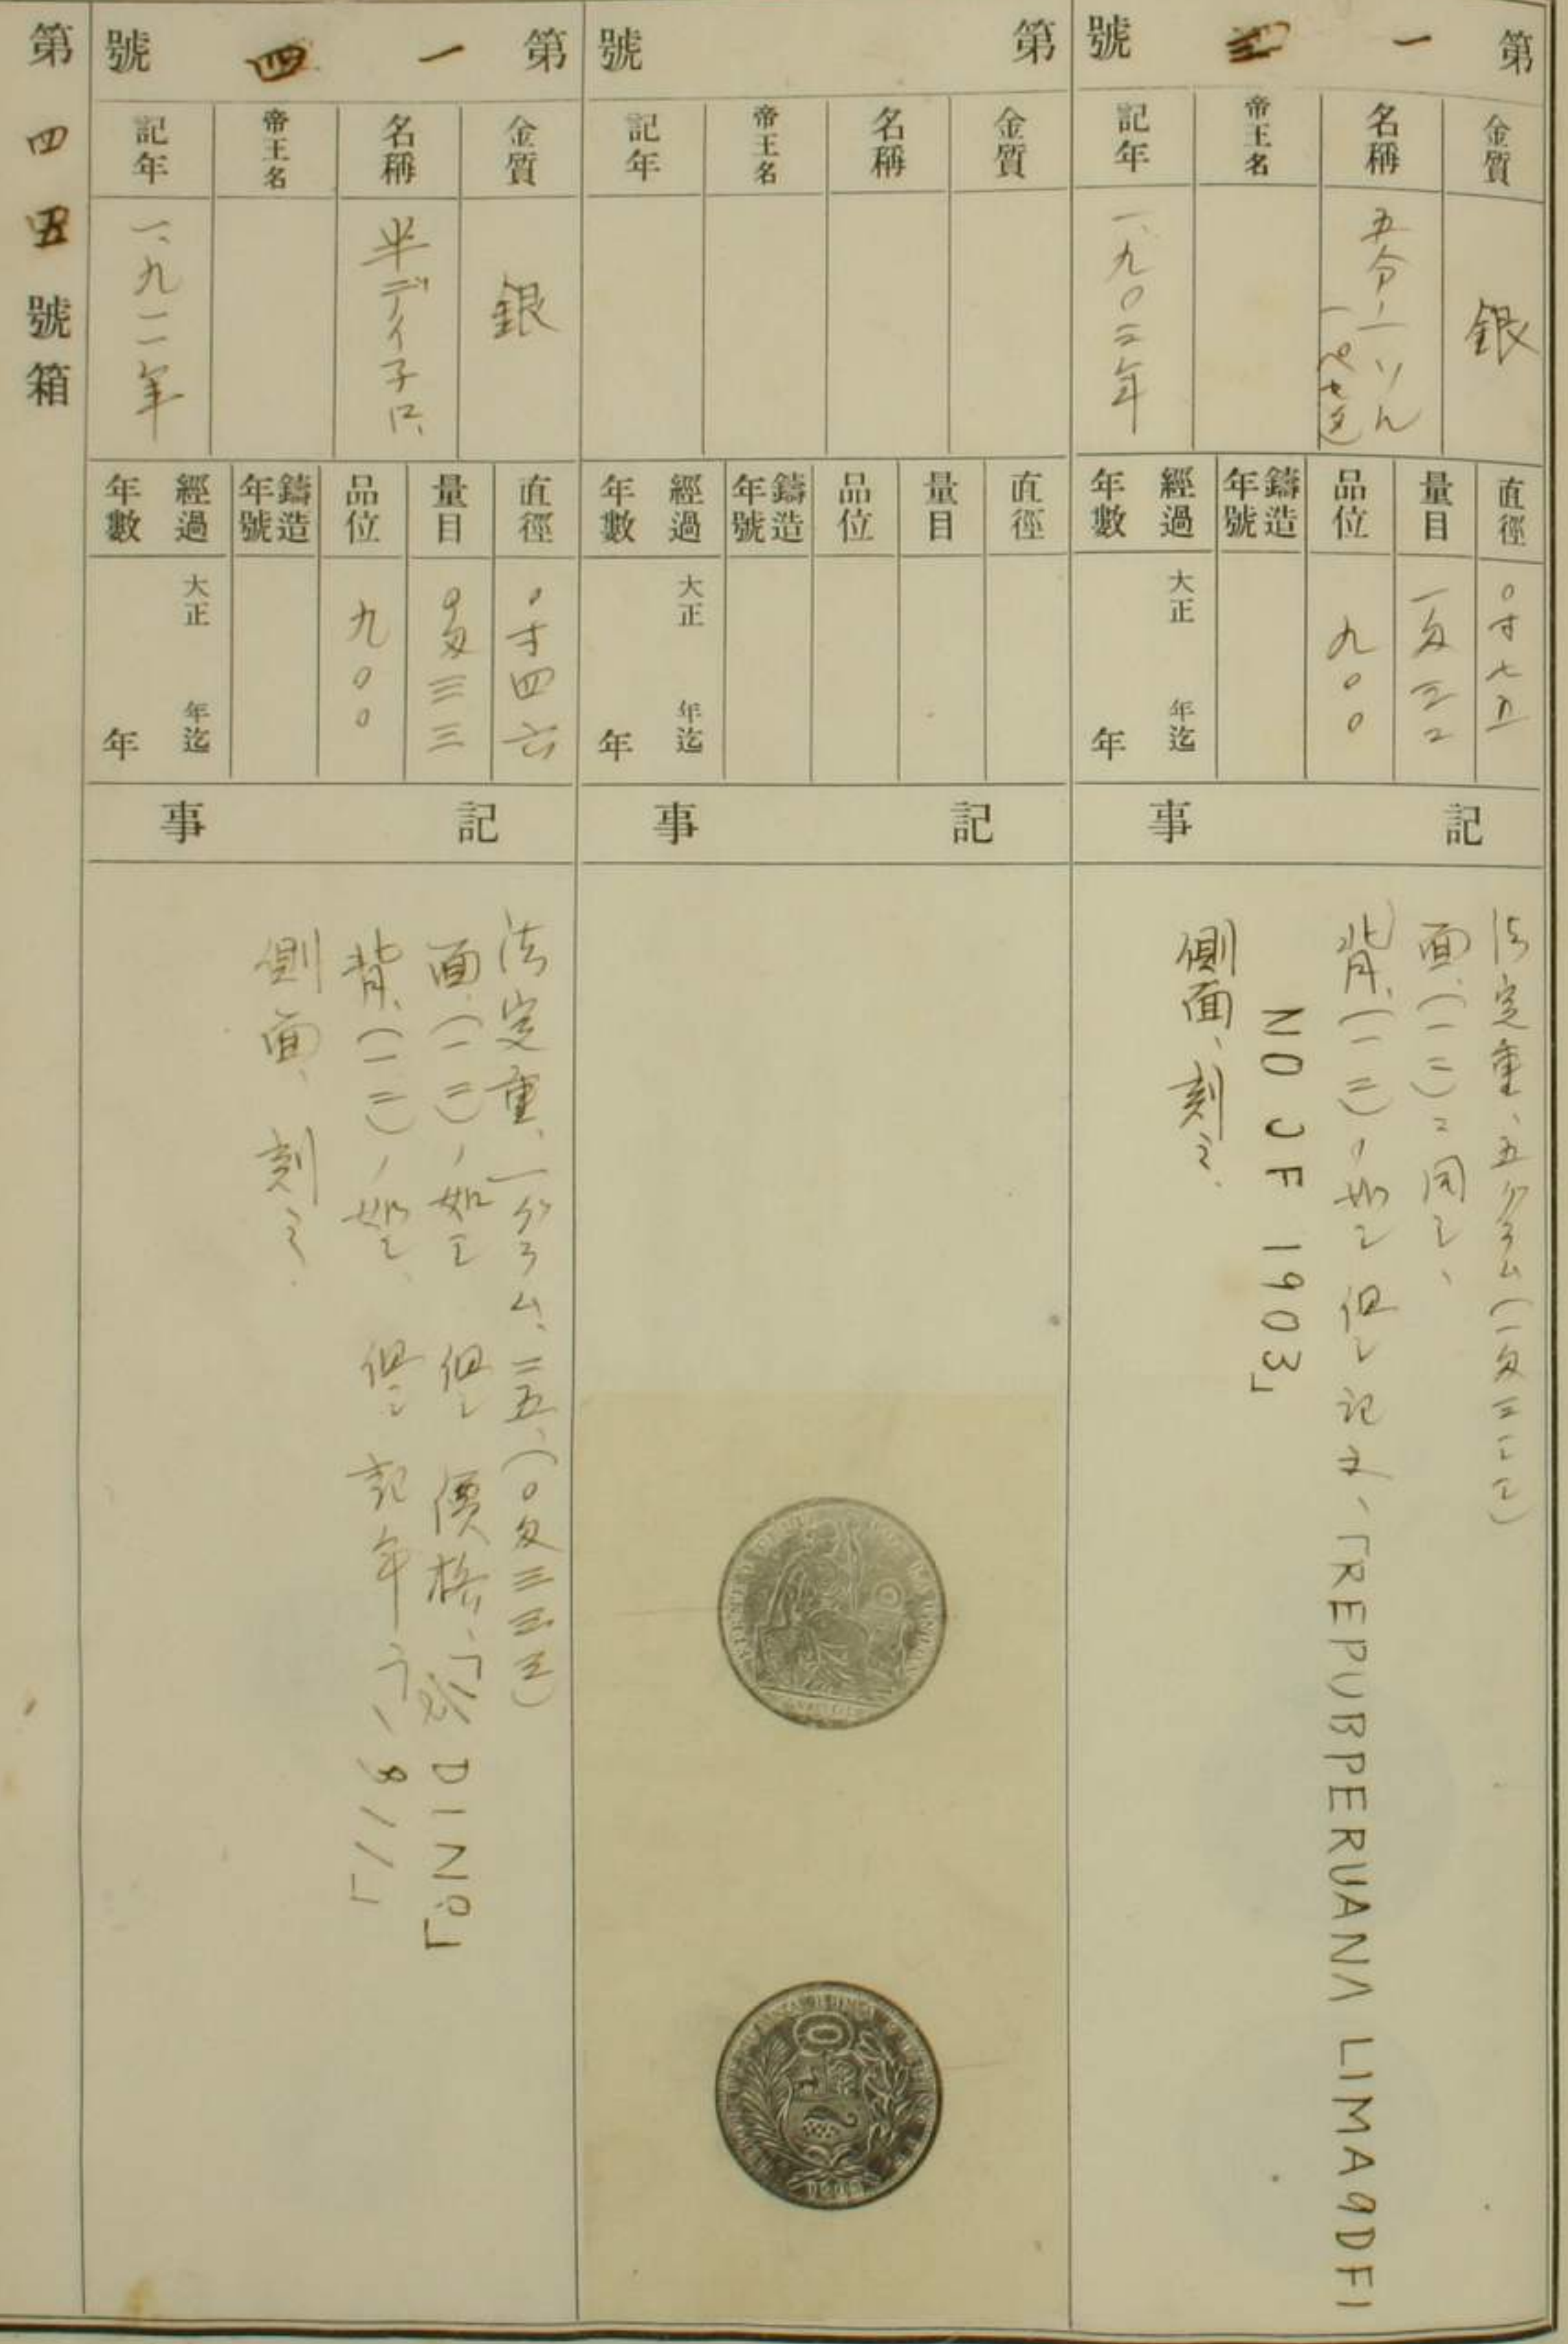 第一三號
金質
銀
名稱
五分ノ一ソル
帝王名
記年
一、九〇三年
直徑
〇寸七五
量目
一匁三二
品位
九〇〇
鑄造年號
經過年數
大正 年迄
年
記事
法定重、五グラム(一匁三三三)
面、(一二)ニ同シ、
背、(一二)ノ如シ但シ記文、「REPUBPERUANA LIMA9DFI
NO JF 1903」
側面、刻ミ.
第 號
金質
名稱
帝王名
記年
直徑
量目
品位
鑄造年號
經過年數
大正 年迄
年
記事
第一四號
金質
銀
名稱
半ディネロ
帝王名
記年
一、九一一年
直徑
〇寸四六
量目
〇匁三三
品位
九〇〇
鑄造年號
經過年數
大正 年迄
年
記事
法定重、一グラム、二五、(〇匁三三三)
面、(一二)ノ如シ 但シ 價格、「1/2 DINO」
背、(一二)ノ如シ、但シ 記年「1911」
側面、刻ミ.
第四四五號箱